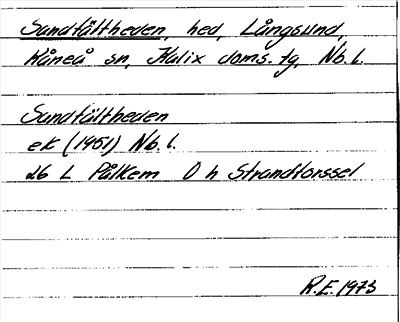 Sandfältheden, hed, Långsund,
Råneå sn, Kalix doms. tg, Nb. l.
Sandfältheden
ek (1951) Nb. l.
26 L Pålkem O h Strandforssel
R.E. 1973